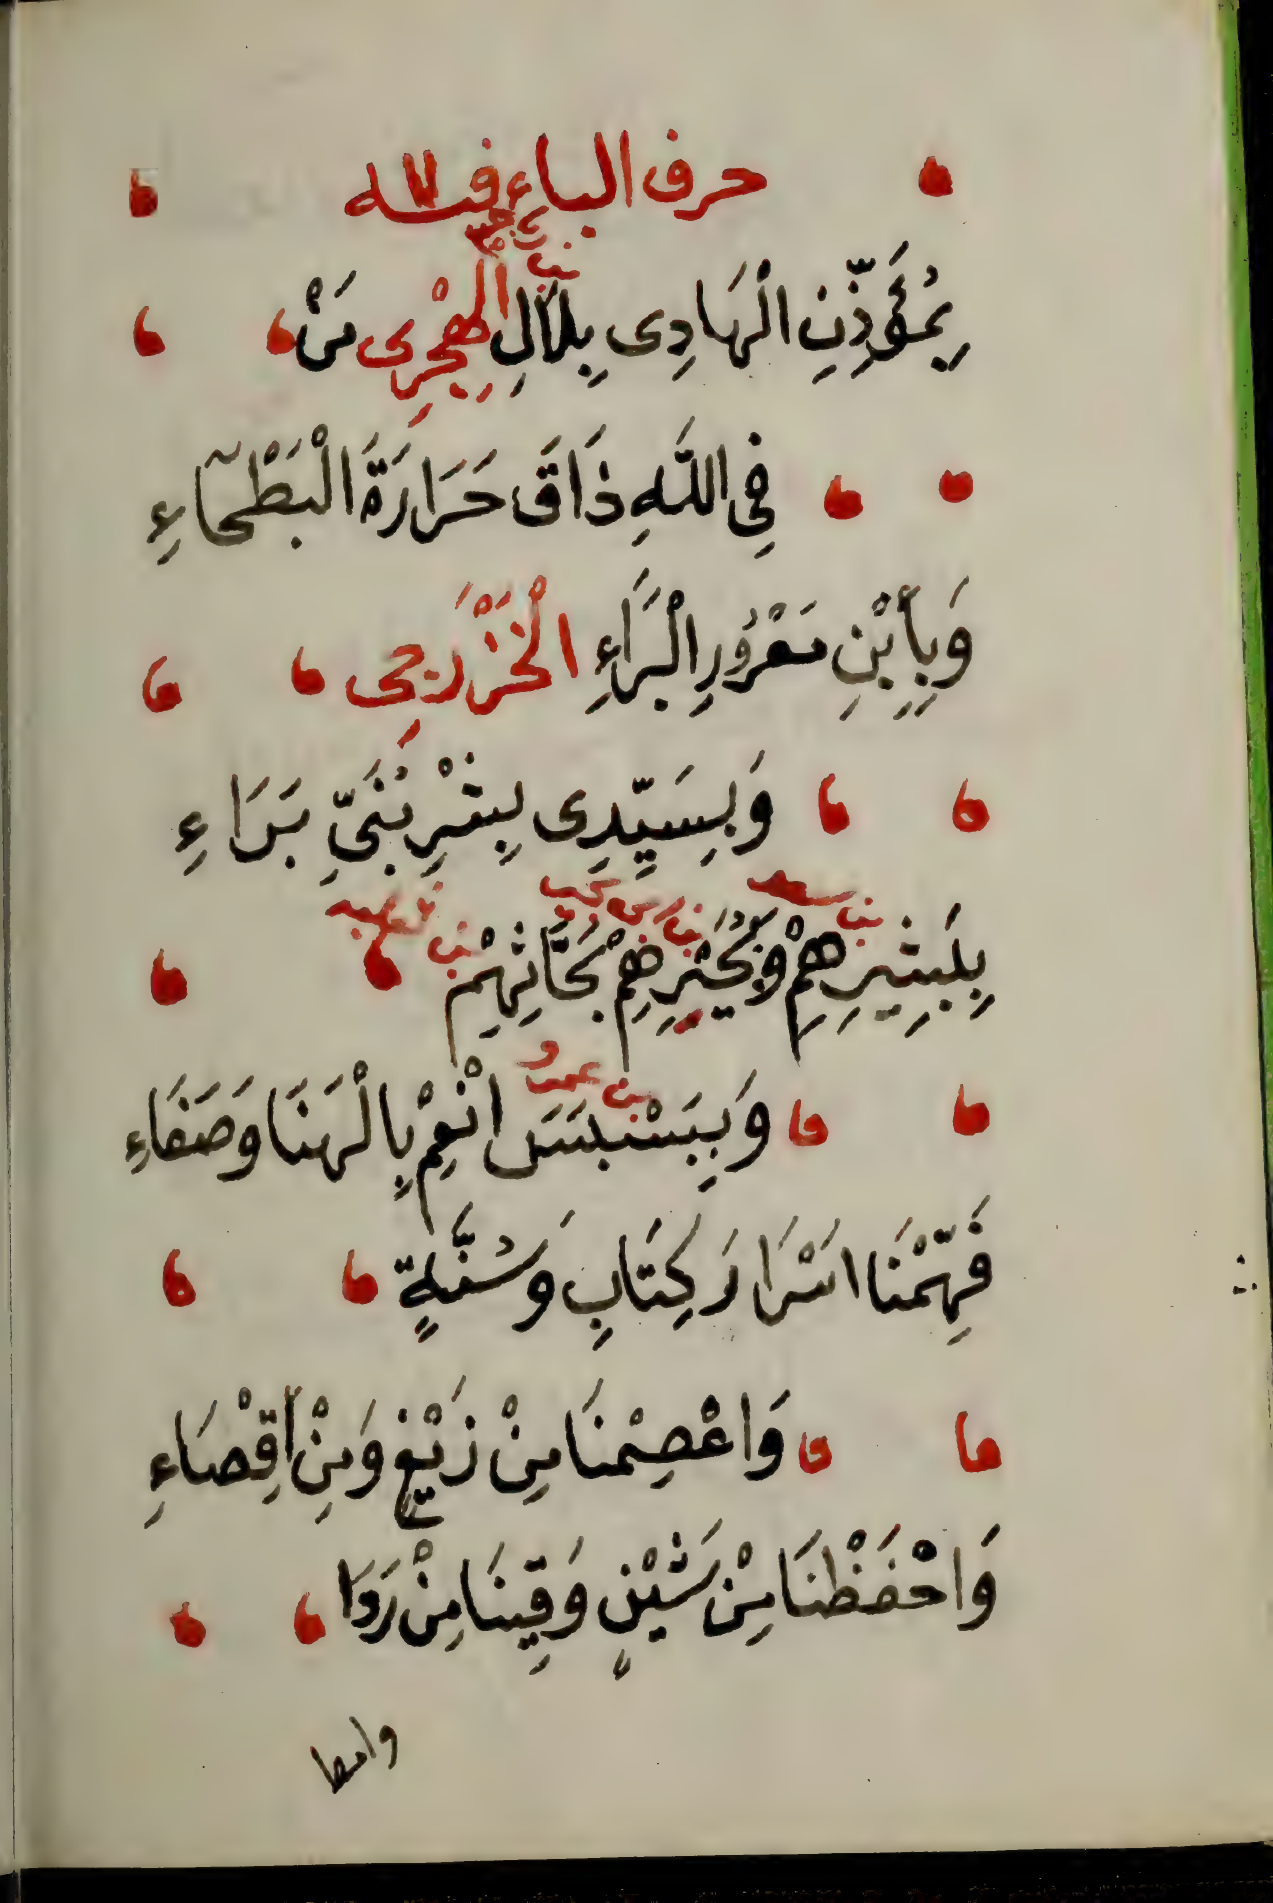 حرف الباء فيه
بِمُؤَذِّنِ الْهَادِى بِلَالِ الْمُهْجِرِى مَنْ
فِى اللَّهِ ذَاقَ حَرَارَةَ الْبَطْحَآءِ
وَبِأَبْنِ مَعْرُورِ الْبَرَاءِ الْخَزْرَجِى
وَبِسَيِّدِى بِشْرِ بُنَىِّ بَرَاءِ
بن سعد
بِبَشِيرِهِمْ وَبُحَيْرِهِمْ بَحَّاثِهِمْ
بن عمرو
وَبِبَسْبَسَ انْعِمْ بِالْهَنَا وَصَفَاءِ
فَهِّمْنَا اسْرَارَ كِتَابِ وَسُنَّةٍ
وَاعْصِمْنَا مِنْ زَيْغٍ وَمِنْ اَقِصَاءِ
وَاحْفَظْنَا مِنْ شَيْنٍ وَقِينَا مِنْ رَوَا